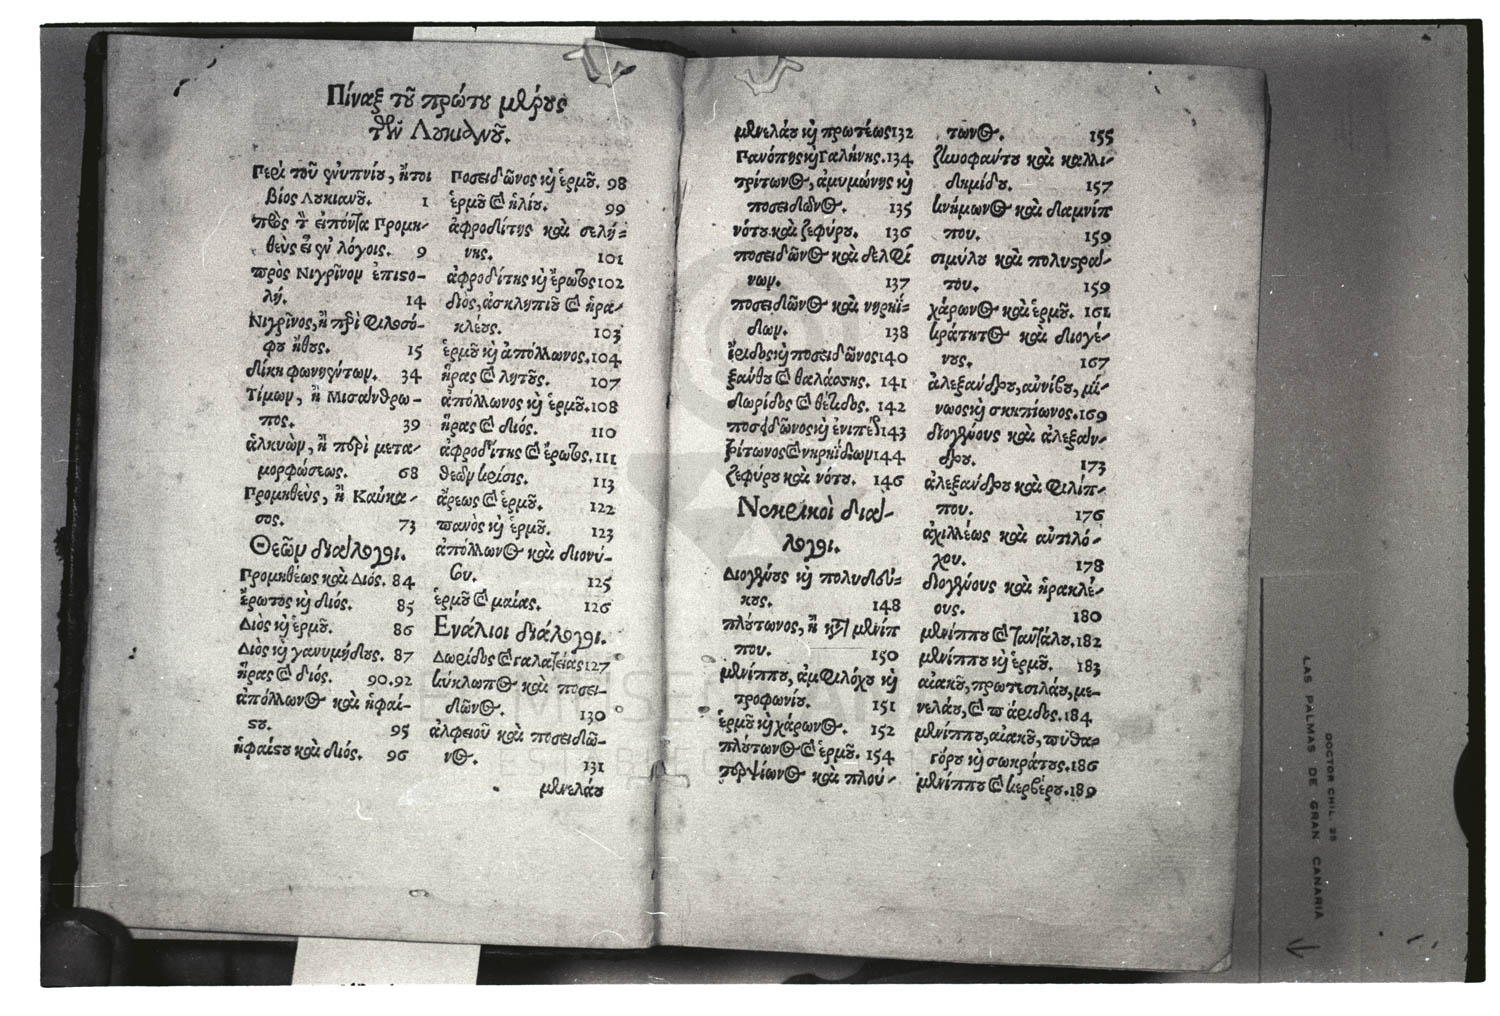 Πίναξ τοῦ πρώτου μέρους
τῶν Λουκιανοῦ.
Περὶ τοῦ ἐνυπνίου, ἤτοι
βίος Λουκιανοῦ. 1
πρὸς τὸν εἰπόντα Προμη-
θεὺς εἶ ἐν λόγοις. 9
πρὸς Νιγρῖνον ἐπιστο-
λή. 14
Νιγρῖνος, ἢ περὶ φιλοσό-
φου ἤθους. 15
δίκη φωνηέντων. 34
Τίμων, ἢ Μισάνθρω-
πος. 39
ἀλκυὼν, ἢ περὶ μετα-
μορφώσεως. 68
Προμηθεὺς, ἢ Καύκα-
σος. 73
Θεῶν διάλογοι.
Προμηθέως καὶ Διός. 84
ἔρωτος καὶ διός. 85
Διὸς καὶ ἑρμοῦ. 86
Διὸς καὶ γανυμήδους. 87
ἥρας καὶ διός. 90.92
ἀπόλλωνος καὶ ἡφαί-
στου. 95
ἡφαίστου καὶ διός. 96
Ποσειδῶνος καὶ ἑρμοῦ. 98
ἑρμοῦ καὶ ἡλίου. 99
ἀφροδίτης καὶ σελή=
νης. 101
ἀφροδίτης καὶ ἔρωτος 102
διὸς, ἀσκληπιοῦ καὶ ἡρα-
κλέους. 103
ἑρμοῦ καὶ ἀπόλλωνος. 104
ἥρας καὶ λητοῦς. 107
ἀπόλλωνος καὶ ἑρμοῦ. 108
ἥρας καὶ διός. 110
ἀφροδίτης καὶ ἔρωτος. 111
θεῶν κρίσις. 113
ἄρεως καὶ ἑρμοῦ. 122
πανὸς καὶ ἑρμοῦ. 123
ἀπόλλωνος καὶ διονύ-
σου. 125
ἑρμοῦ καὶ μαίας. 126
Ενάλιοι διάλογοι.
Δωρίδος καὶ γαλατείας 127
κύκλωπος καὶ ποσει-
δῶνος. 130
ἀλφειοῦ καὶ ποσειδῶ-
νος. 131
μενελάου
μενελάου καὶ πρωτέως 132
Πανόπης καὶ Γαλήνης. 134
τρίτωνος, ἀμυμώνης καὶ
ποσειδῶνος. 135
νότου καὶ ζεφύρου. 136
ποσειδῶνος καὶ δελφί
νων. 137
ποσειδῶνος καὶ νηρηΐ=
δων. 138
ἴριδος καὶ ποσειδῶνος 140
ξάνθου καὶ θαλάσσης. 141
δωρίδος καὶ θέτιδος. 142
ποσειδῶνος καὶ ἐνιπέως 143
τρίτωνος καὶ νηρηΐδων 144
ζεφύρου καὶ νότου. 146
Νεκρικοὶ διάλ-
λογοι.
Διογένους καὶ πολυδεύ=
κους. 148
πλούτωνος, ἢ κατὰ μενίπ
που. 150
μενίππου, ἀμφιλόχου καὶ
τροφωνίου. 151
ἑρμοῦ καὶ χάρωνος. 152
πλούτωνος καὶ ἑρμοῦ. 154
τερψίωνος καὶ πλού-
τωνος. 155
ζηνοφάντου καὶ καλλι-
δημίδου. 157
κνήμωνος καὶ δαμνίπ
που. 159
σιμύλου καὶ πολυστρά-
του. 159
χάρωνος καὶ ἑρμοῦ. 161
κράτητος καὶ διογέ-
νους. 167
ἀλεξάνδρου, ἀννίβου, μί-
νωος καὶ σκηπίωνος. 169
διογένους καὶ ἀλεξάν-
δρου. 173
ἀλεξάνδρου καὶ φιλίπ-
που. 176
ἀχιλλέως καὶ ἀντιλό-
χου. 178
διογένους καὶ ἡρακλέ-
ους. 180
μενίππου καὶ ταντάλου. 182
μενίππου καὶ ἑρμοῦ. 183
αἰακοῦ, πρωτεσιλάου, με-
νελάου, καὶ πάριδος. 184
μενίππου, αἰακοῦ, πυθα-
γόρου καὶ σωκράτους. 186
μενίππου καὶ κερβέρου. 189
DOCTOR CHIL, 25
LAS PALMAS DE GRAN CANARIA
EL MUSEO CANARIO